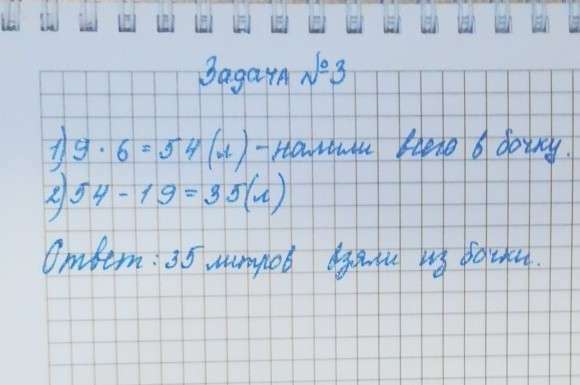 Задача №3
1) 9 · 6 = 54 (л) - налили всего в бочку.
2) 54 - 19 = 35 (л)
Ответ: 35 литров взяли из бочки.